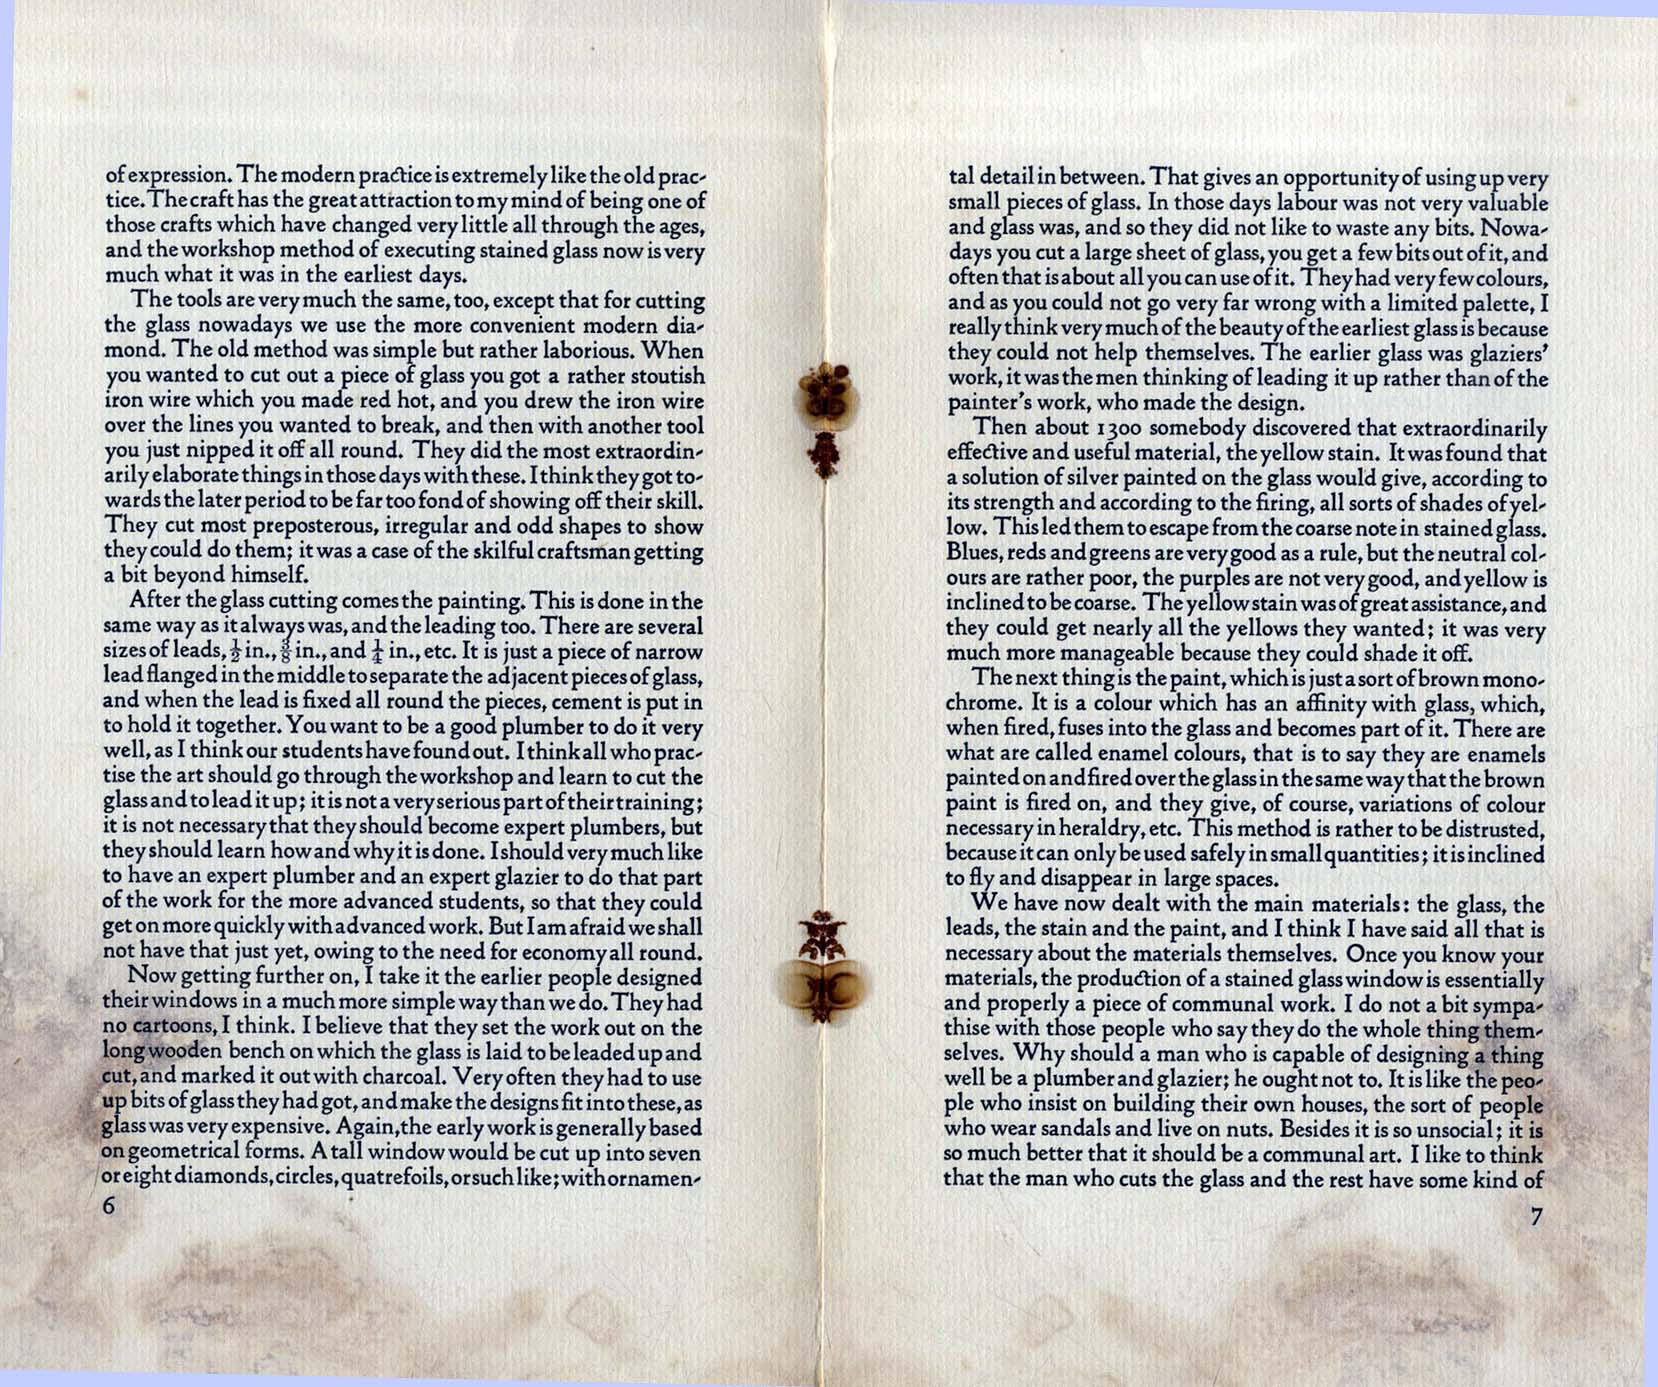 of expression. The modern practice is extremely like the old prac-
tice. The craft has the great attraction to my mind of being one of
those crafts which have changed very little all through the ages,
and the workshop method of executing stained glass now is very
much what it was in the earliest days.
The tools are very much the same, too, except that for cutting
the glass nowadays we use the more convenient modern dia-
mond. The old method was simple but rather laborious. When
you wanted to cut out a piece of glass you got a rather stoutish
iron wire which you made red hot, and you drew the iron wire
over the lines you wanted to break, and then with another tool
you just nipped it off all round. They did the most extraordin-
arily elaborate things in those days with these. I think they got to-
wards the later period to be far too fond of showing off their skill.
They cut most preposterous, irregular and odd shapes to show
they could do them; it was a case of the skilful craftsman getting
a bit beyond himself.
After the glass cutting comes the painting. This is done in the
same way as it always was, and the leading too. There are several
sizes of leads, ½ in., ⅜ in., and ¼ in., etc. It is just a piece of narrow
lead flanged in the middle to separate the adjacent pieces of glass,
and when the lead is fixed all round the pieces, cement is put in
to hold it together. You want to be a good plumber to do it very
well, as I think our students have found out. I think all who prac-
tise the art should go through the workshop and learn to cut the
glass and to lead it up; it is not a very serious part of their training;
it is not necessary that they should become expert plumbers, but
they should learn how and why it is done. I should very much like
to have an expert plumber and an expert glazier to do that part
of the work for the more advanced students, so that they could
get on more quickly with advanced work. But I am afraid we shall
not have that just yet, owing to the need for economy all round.
Now getting further on, I take it the earlier people designed
their windows in a much more simple way than we do. They had
no cartoons, I think. I believe that they set the work out on the
long wooden bench on which the glass is laid to be leaded up and
cut, and marked it out with charcoal. Very often they had to use
up bits of glass they had got, and make the designs fit into these, as
glass was very expensive. Again, the early work is generally based
on geometrical forms. A tall window would be cut up into seven
or eight diamonds, circles, quatrefoils, or such like; with ornamen-
6
tal detail in between. That gives an opportunity of using up very
small pieces of glass. In those days labour was not very valuable
and glass was, and so they did not like to waste any bits. Nowa-
days you cut a large sheet of glass, you get a few bits out of it, and
often that is about all you can use of it. They had very few colours,
and as you could not go very far wrong with a limited palette, I
really think very much of the beauty of the earliest glass is because
they could not help themselves. The earlier glass was glaziers'
work, it was the men thinking of leading it up rather than of the
painter's work, who made the design.
Then about 1300 somebody discovered that extraordinarily
effective and useful material, the yellow stain. It was found that
a solution of silver painted on the glass would give, according to
its strength and according to the firing, all sorts of shades of yel-
low. This led them to escape from the coarse note in stained glass.
Blues, reds and greens are very good as a rule, but the neutral col-
ours are rather poor, the purples are not very good, and yellow is
inclined to be coarse. The yellow stain was of great assistance, and
they could get nearly all the yellows they wanted; it was very
much more manageable because they could shade it off.
The next thing is the paint, which is just a sort of brown mono-
chrome. It is a colour which has an affinity with glass, which,
when fired, fuses into the glass and becomes part of it. There are
what are called enamel colours, that is to say they are enamels
painted on and fired over the glass in the same way that the brown
paint is fired on, and they give, of course, variations of colour
necessary in heraldry, etc. This method is rather to be distrusted,
because it can only be used safely in small quantities; it is inclined
to fly and disappear in large spaces.
We have now dealt with the main materials: the glass, the
leads, the stain and the paint, and I think I have said all that is
necessary about the materials themselves. Once you know your
materials, the production of a stained glass window is essentially
and properly a piece of communal work. I do not a bit sympa-
thise with those people who say they do the whole thing them-
selves. Why should a man who is capable of designing a thing
well be a plumber and glazier; he ought not to. It is like the peo-
ple who insist on building their own houses, the sort of people
who wear sandals and live on nuts. Besides it is so unsocial; it is
so much better that it should be a communal art. I like to think
that the man who cuts the glass and the rest have some kind of
7